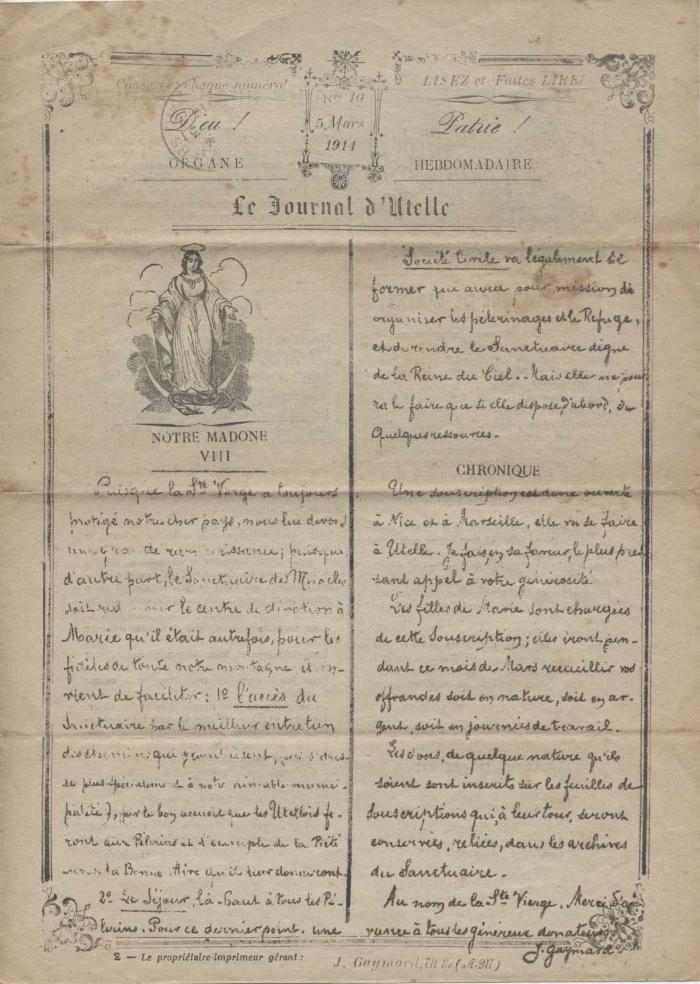 Conservez chaque numéro!
LISEZ et Faites LIRE!
Nro 10
5 Mars
1914
Dieu !
Patrie !
ORGANE
HEBDOMADAIRE
Le Journal d'Utelle
NOTRE MADONE
VIII
Puisque la Ste Vierge a toujours
protégé notre cher pays, nous lui devons
de reconnaissance ; puisque,
d'autre part, le Sanctuaire des Miracles
doit redevenir le centre de dévotion à
Marie qu'il était autrefois, pour les
fidèles de toute notre montagne il con-
vient de faciliter : 1º l'accès du
Sanctuaire par le meilleur entretien
des chemins qui y conduisent,
se plus spécialement à notre aimable munici-
palité), par le bon accueil que les Utellois fe-
ront aux Pèlerins et l'exemple de la Piété
envers la Bonne Mère qu'ils leur donneront.
2º Le Séjour, là-haut à tous les Pè-
lerins. Pour ce dernier point, une
Société Civile va légalement se
former qui aura pour mission de
organiser les pèlerinages et le Refuge,
et de rendre le Sanctuaire digne
de la Reine du Ciel.. Mais elle ne pour
ra le faire que si elle dispose, d'abord, de
quelques ressources.
CHRONIQUE
Une souscription est donc ouverte
à Nice et à Marseille, elle va se faire
à Utelle. Je fais, en sa faveur, le plus pres
sant appel à votre générosité.
Les filles de Marie sont chargées
de cette Souscription ; elles iront pen-
dant ce mois de Mars recueillir vos
offrandes soit en nature, soit en ar-
gent, soit en journées de travail.
Les dons, de quelque nature qu'ils
soient sont inscrits sur les feuilles de
souscriptions qui, à leur tour, seront
conservées, reliées, dans les archives
du Sanctuaire.
Au nom de la Ste Vierge. Merci d'a
vance à tous les généreux donateurs
J. Gaymard
2 — Le propriétaire-imprimeur gérant : J. Gaymard, Utelle (A-M)